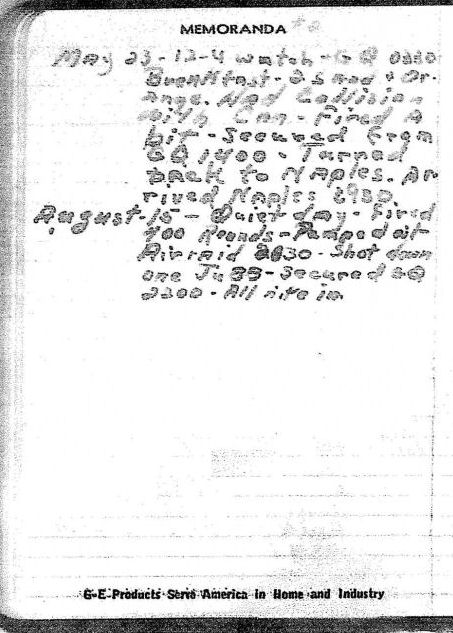 MEMORANDA
May 23-12-4 watch-GQ
Breakfast-2 S
ange. Had Collision
with Can-Fired A
bit-Secured from
GQ 1400-Turned
back to Naples. Ar
rived Naples 1930
August-15-Quiet day-Fired
400 Rounds-
Airraid 2030-Shot down
one Ju 88-Secured GQ
2200-All nite in
G-E Products Serve America in Home and Industry